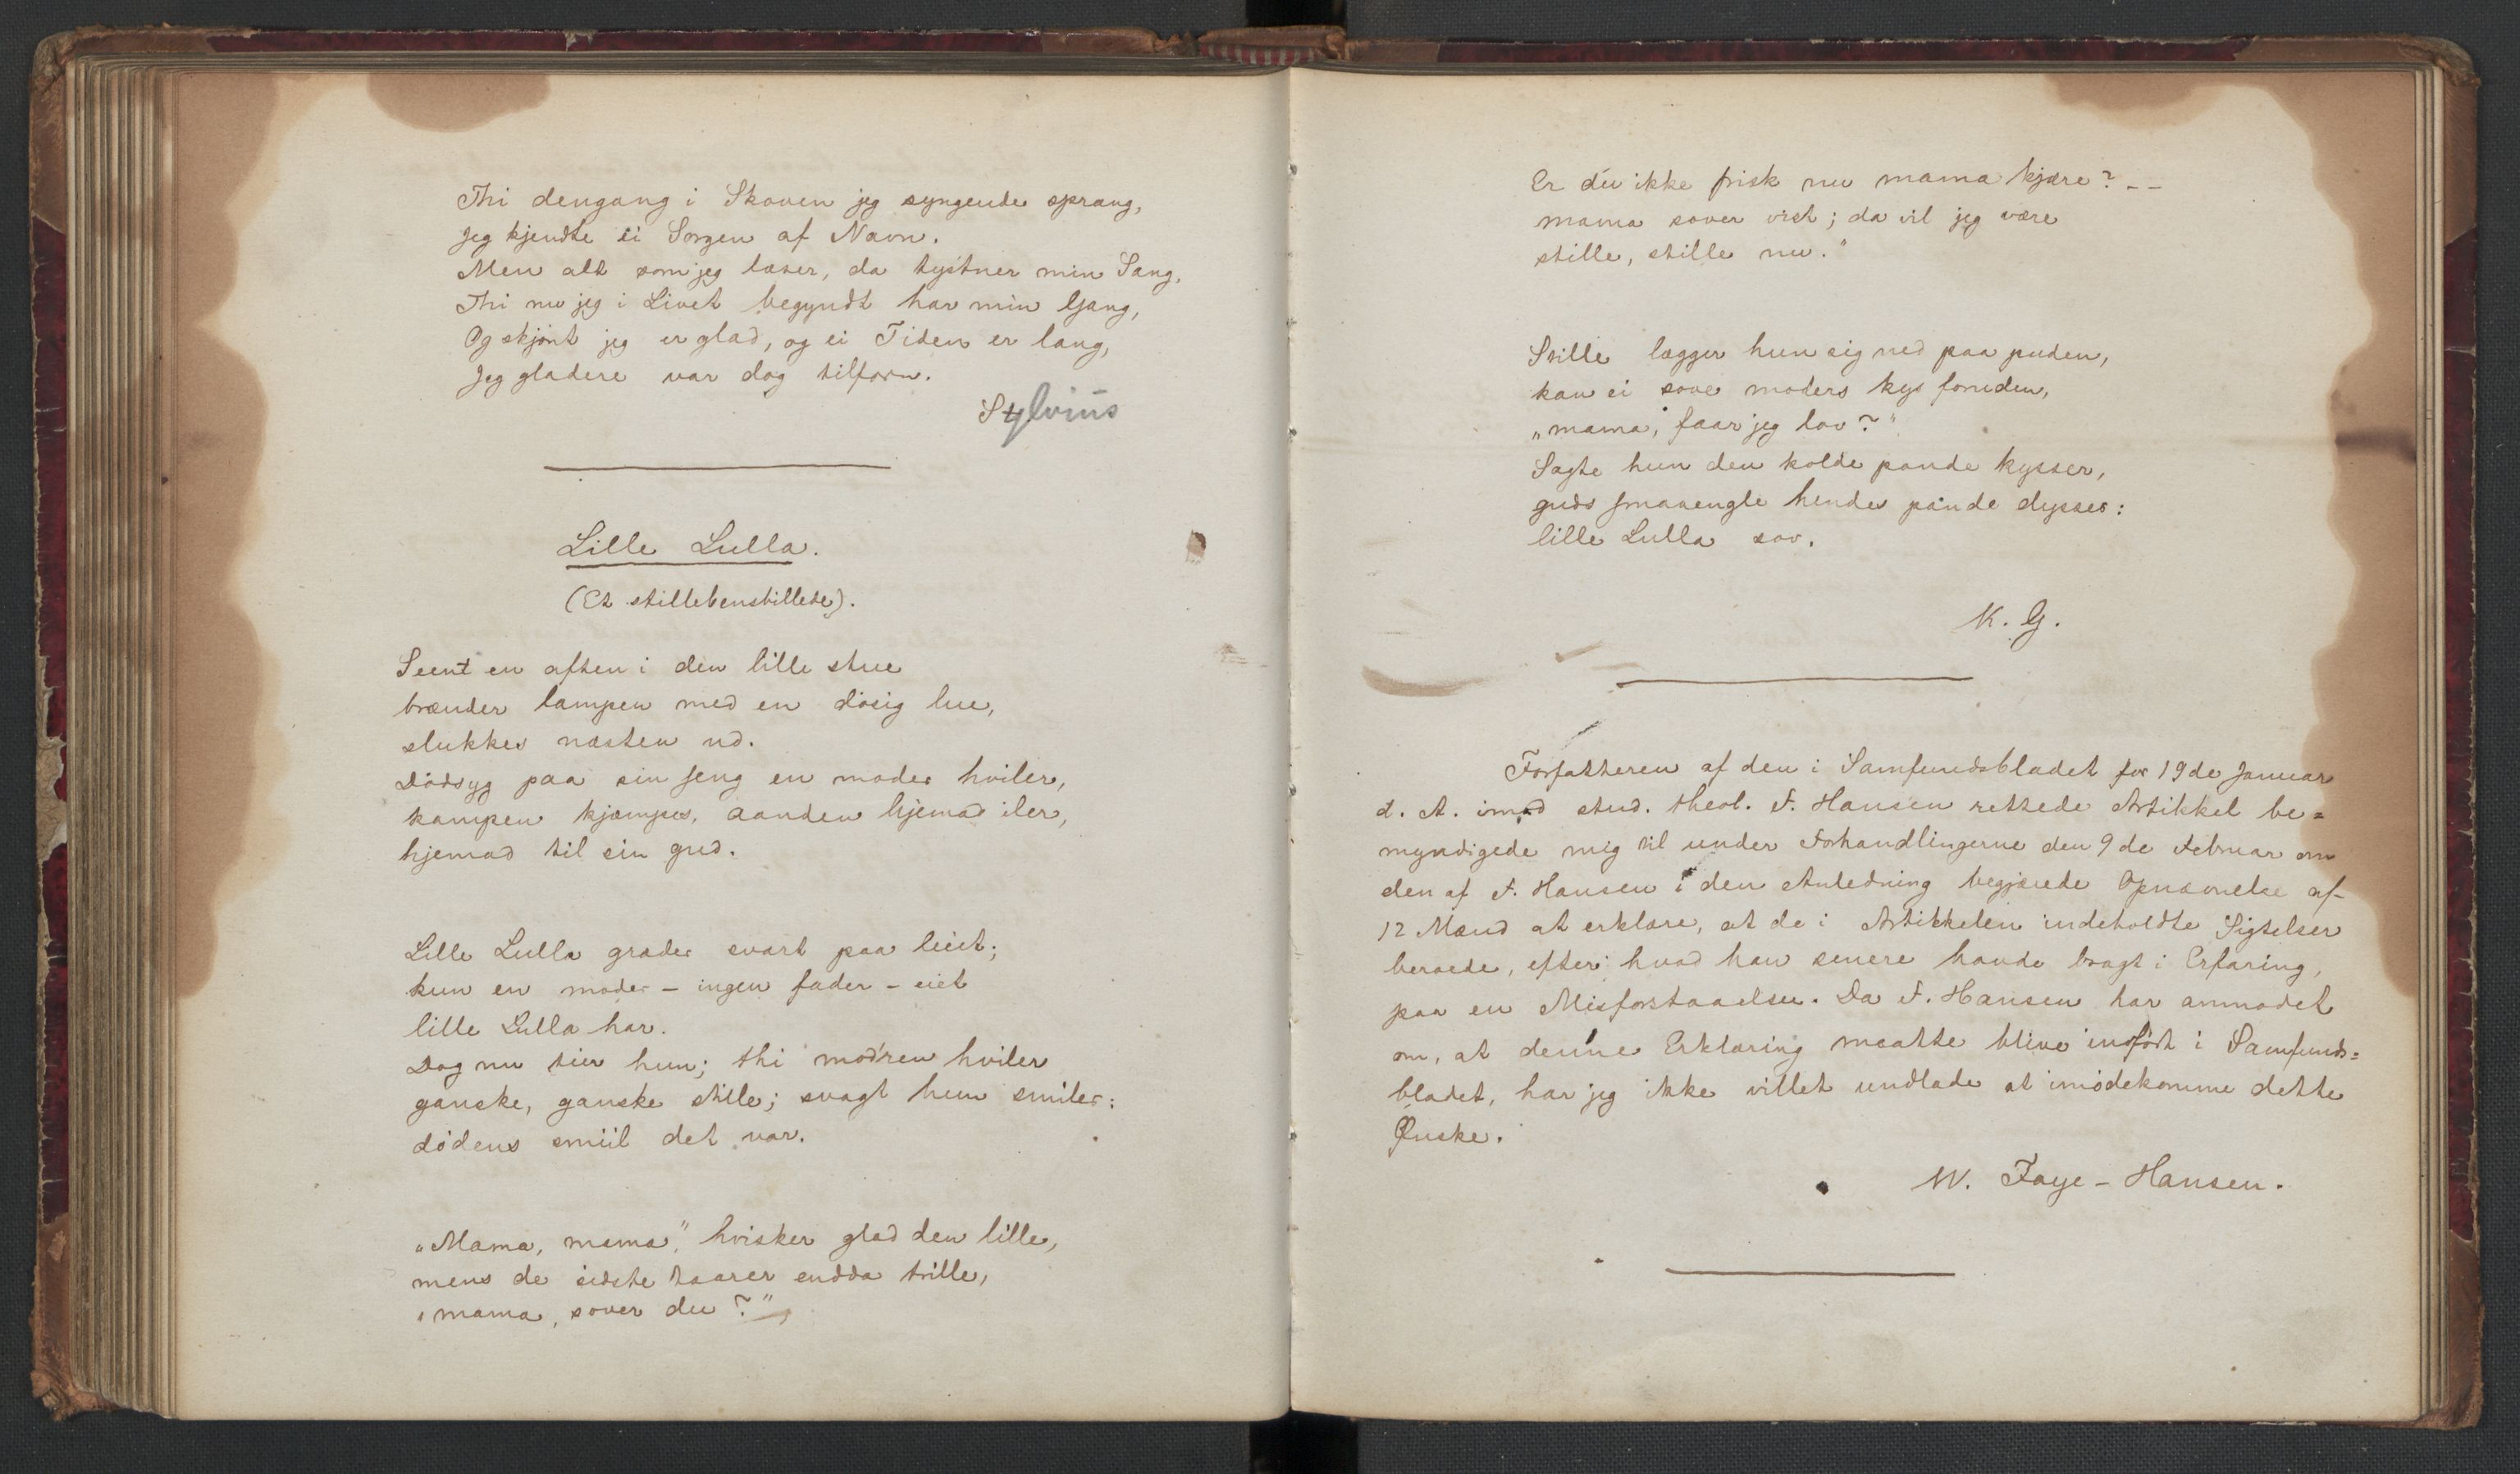 Thi dengang i Skoven jeg syngende sprang,
Jeg kjendte ei Sorgen af Navn.
Men alt som jeg læser, da tystner min Sang,
Thi nu jeg i Livet begyndt har min Gang,
Og skjønt jeg er glad, og ei Tiden er lang,
Jeg gladere var dog tilforn.
Sylvius
Lille Lulla.
(Et stillebensbillede).
Seent en aften i den lille stue
brænder lampen med en døsig lue,
slukkes næsten ud.
Dødsyg paa sin seng en moder hviler,
kampen kjæmpes, aanden hjemad iler,
hjemad til sin gud.
Lille Lulla græder svart paa leiet;
kun en moder – ingen fader – eiet
lille Lulla har.
Dog nu tier hun; thi mod'ren hviler
ganske, ganske stille; svagt hun smiler:
dødens smiil det var.
„Mama, mama", hvisker glad den lille,
mens de sidste taarer endda trille,
„mama, sover du?"
Er du ikke frisk nu mama kjære? – –
mama sover vist; da vil jeg være
stille, stille nu."
Stille lægger hun sig ned paa puden,
kan ei sove moders kys foruden,
„mama, faar jeg lov?"
Sagte hun den kolde pande kysser,
guds smaaengle hendes pande dysser:
lille Lulla sov.
K. G.
Forfatteren af den i Samfundsbladet for 19de Januar
d. A. imod stud. theol. F. Hansen rettede Artikkel be=
myndigede mig til under Forhandlingerne den 9de Februar om
den af F. Hansen i den Anledning begjærede Opnævnelse af
12 Mænd at erklære, at de i Artikkelen indeholdte Sigtelser
beroede, efter hvad han senere havde bragt i Erfaring,
paa en Misforstaaelse. Da F. Hansen har anmodet
om, at denne Erklæring maatte blive indført i Samfunds=
bladet, har jeg ikke villet undlade at imødekomme dette
Ønske.
W. Faye – Hansen.